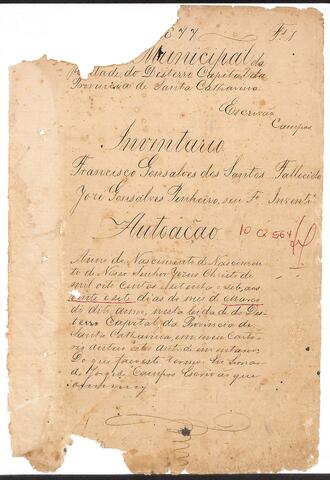 1877 Fs 1
Municipal da
Cidade do Desterro Capital da
Provincia de Santa Catharina
Escrivão
Campos
Inventario
Francisco Gonsalves dos Santos Fallecido
José Gonsalves Pinheiro, seu Fº Invente
Autoação
10 Cx 564
Anno do Nascimento de Nascimen
to de Nosso Senhor Jezus Christo de
mil oito centos setenta e sete, aos
vinte e sete dias do mes de Março
do dito anno, nesta Cidade do Des
terro Capital da Provincia de
Santa Catharina, em meu Carto
rio
Do que faço este termo. Eu
de Campos Escrivão que